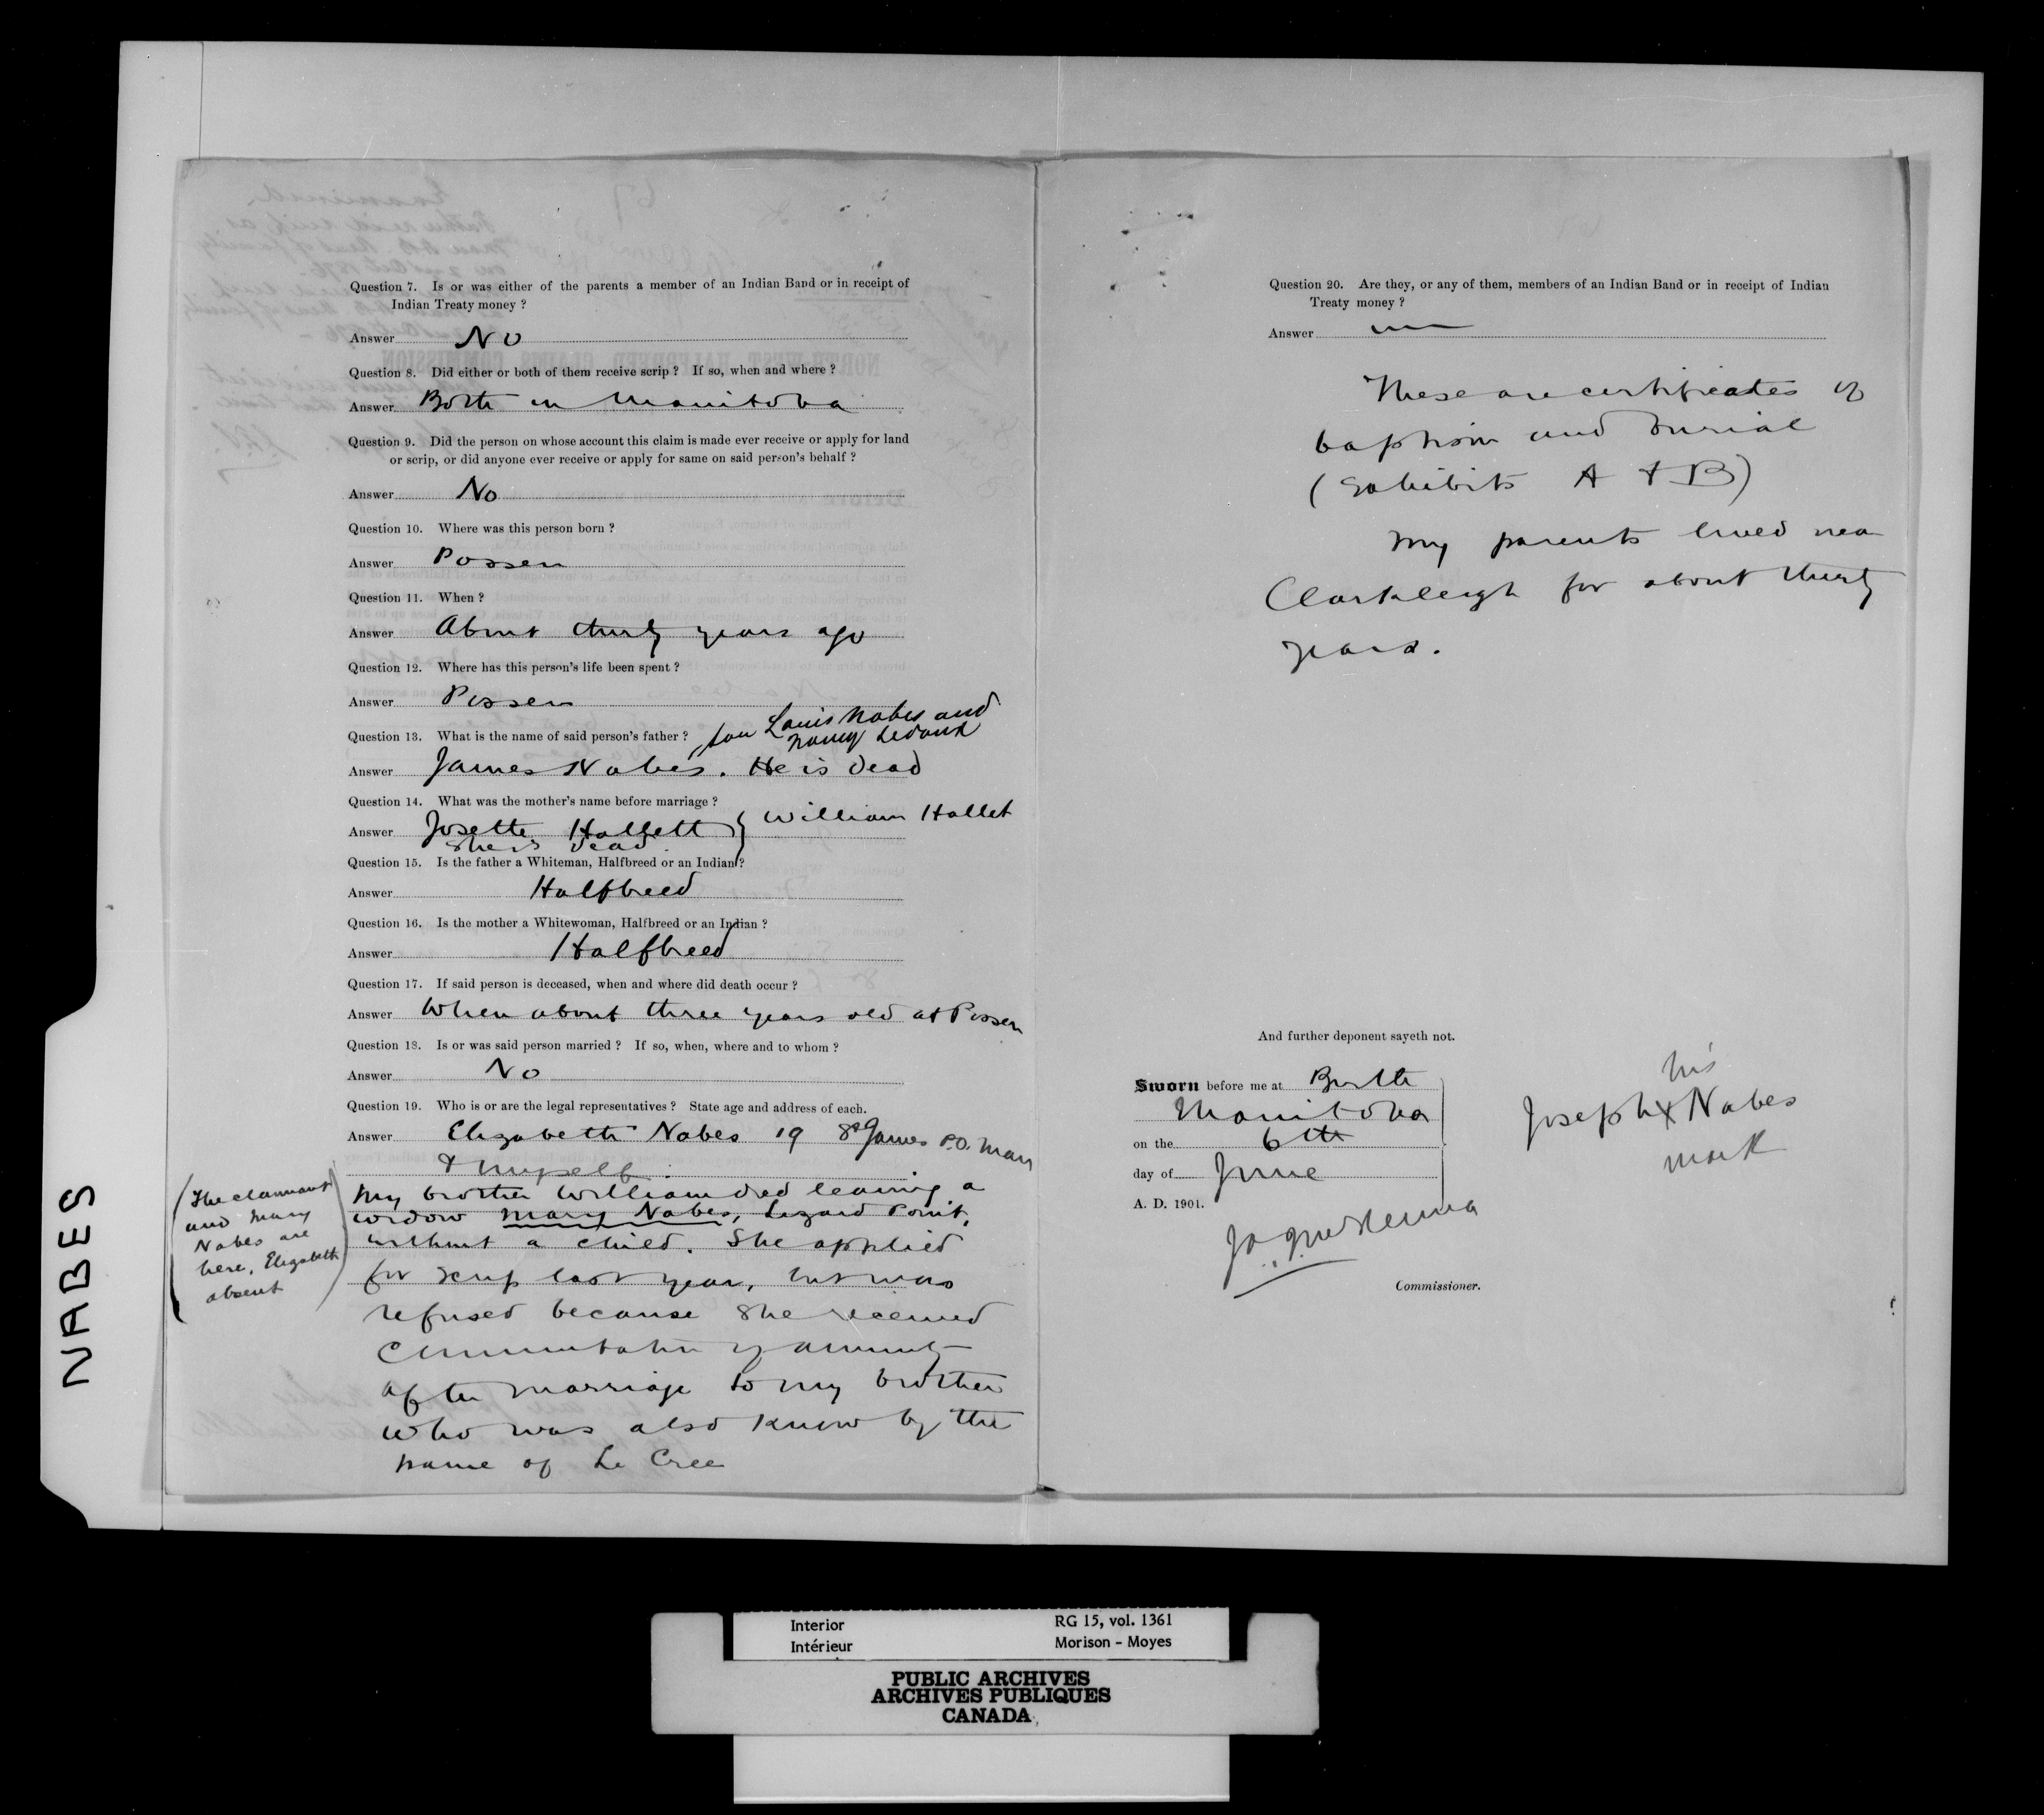 Question 7. Is or was either of the parents a member of an Indian Band or in receipt of
Indian Treaty money ?
Answer No
Question 8. Did either or both of them receive scrip ? If so, when and where ?
Answer Both in Manitoba
Question 9. Did the person on whose account this claim is made ever receive or apply for land
or scrip, or did anyone ever receive or apply for same on said person's behalf ?
Answer No
Question 10. Where was this person born ?
Answer Possen
Question 11. When ?
Answer About thirty years ago
Question 12. Where has this person's life been spent ?
Answer Possen
Question 13. What is the name of said person's father ? son Louis Nabes and
Nancy
Answer James Nabes. He is dead
Question 14. What was the mother's name before marriage ?
Answer Josette Hallett } William Hallet
She is dead
Question 15. Is the father a Whiteman, Halfbreed or an Indian ?
Answer Halfbreed
Question 16. Is the mother a Whitewoman, Halfbreed or an Indian ?
Answer Halfbreed
Question 17. If said person is deceased, when and where did death occur ?
Answer When about three years old at Possen
Question 18. Is or was said person married ? If so, when, where and to whom ?
Answer No
Question 19. Who is or are the legal representatives ? State age and address of each.
Answer Elizabeth Nabes 19 St James P.O. Man
& myself.
My brother William died leaving a
widow Mary Nabes, Lizard Point,
without a child. She applied
for scrip last year, but was
refused because she received
commutation of annuity
after marriage to my brother
who was also know by the
name of Le Cree
(The claimant
and Mary
Nabes are
here, Elizabeth
absent)
NABES
Question 20. Are they, or any of them, members of an Indian Band or in receipt of Indian
Treaty money ?
Answer
These are certificates of
baptism and burial
(Exhibits A & B)
My parents lived near
Clarkleigh for about thirty
years.
And further deponent sayeth not.
Sworn before me at Birtle
Manitoba
on the 6th
day of June
A. D. 1901.
his
Joseph X Nabes
mark
Commissioner.
Interior
Intérieur
RG 15, vol. 1361
Morison - Moyes
PUBLIC ARCHIVES
ARCHIVES PUBLIQUES
CANADA